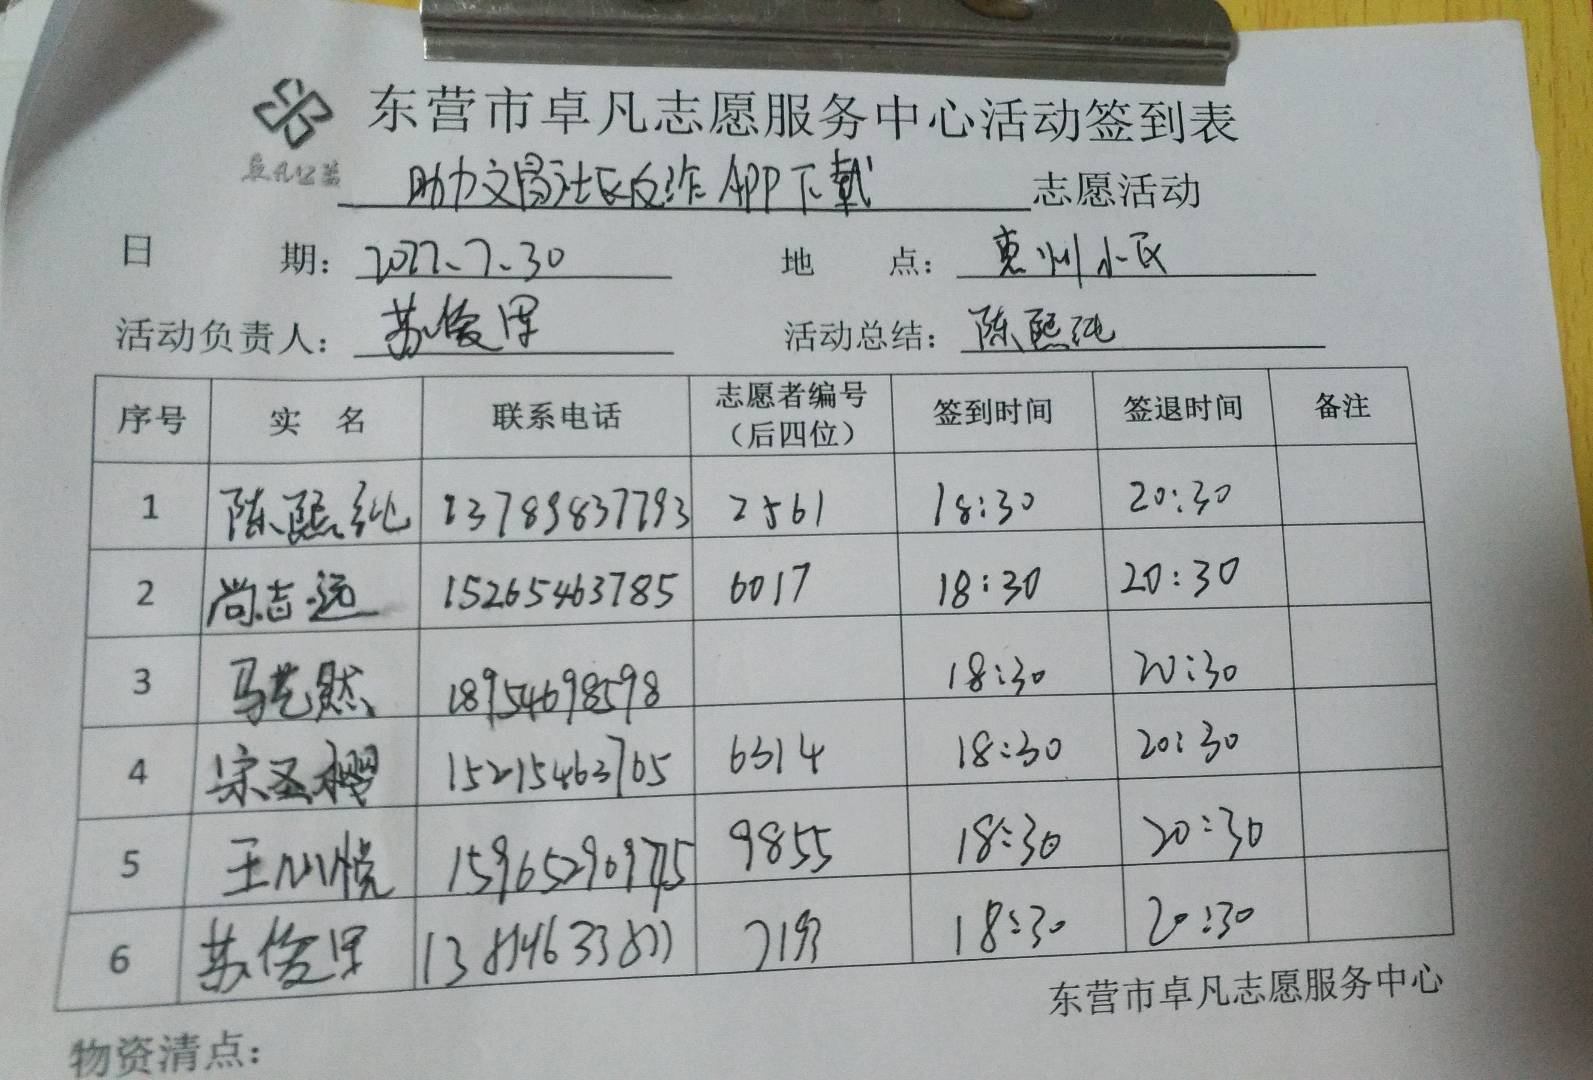 东营市卓凡志愿服务中心活动签到表
卓凡公益
助力文昌社区反诈APP下载 志愿活动
日 期： 2022.7.30 地 点： 惠州小区
活动负责人： 苏俊 活动总结： 陈熙纯
序号 实 名 联系电话 志愿者编号（后四位） 签到时间 签退时间 备注
1 陈熙纯 13789837793 2561 18:30 20:30
2 尚志远 15265463785 6017 18:30 20:30
3 马艺然 18954698598 18:30 20:30
4 宋圣樱 15215463765 6314 18:30 20:30
5 王心悦 9855 18:30 20:30
6 苏俊 7193 18:30 20:30
东营市卓凡志愿服务中心
物资清点：